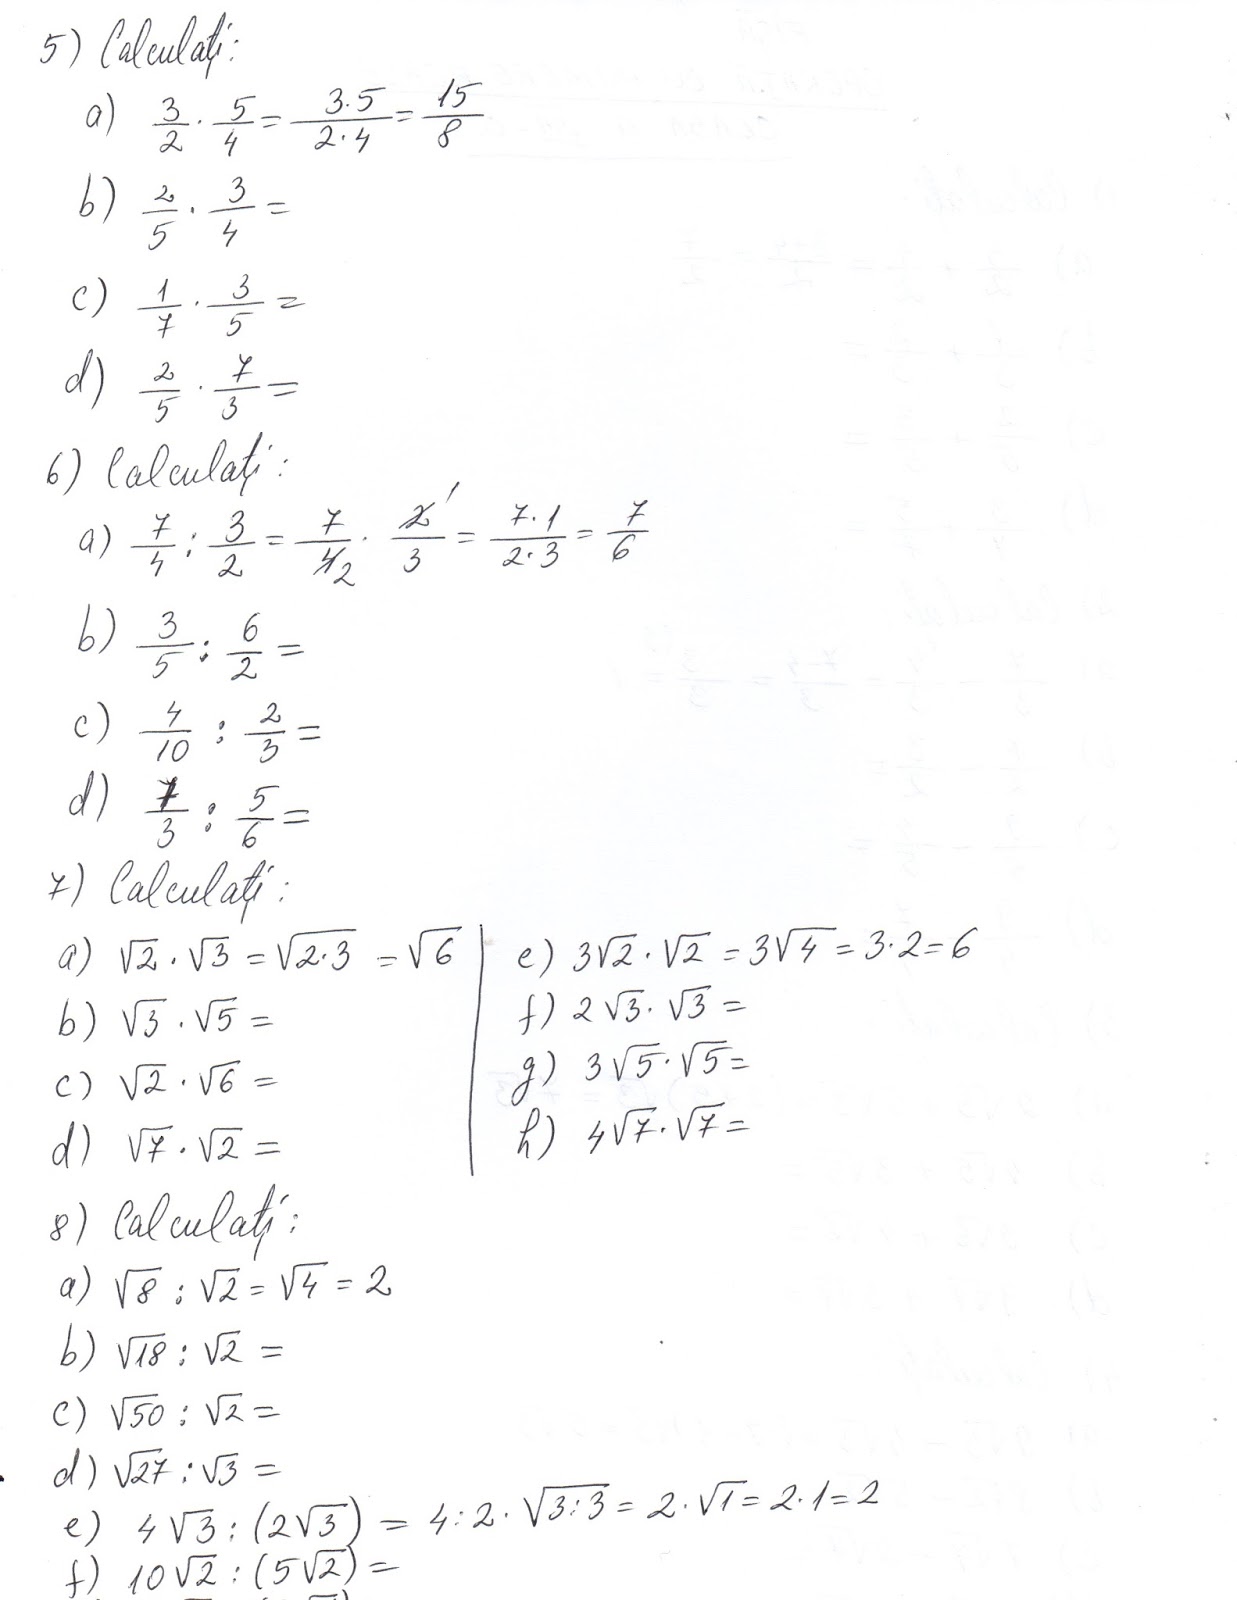 5) Calculați:
a) 3/2 · 5/4 = 3·5/2·4 = 15/8
b) 2/5 · 3/4 =
c) 1/7 · 3/5 =
d) 2/5 · 7/3 =
6) Calculați:
a) 7/4 : 3/2 = 7/4 2 · 2 1/3 = 7·1/2·3 = 7/6
b) 3/5 : 6/2 =
c) 4/10 : 2/3 =
d) 7/3 : 5/6 =
7) Calculați:
a) √2 · √3 = √2·3 = √6
b) √3 · √5 =
c) √2 · √6 =
d) √7 · √2 =
e) 3√2 · √2 = 3√4 = 3·2 = 6
f) 2√3 · √3 =
g) 3√5 · √5 =
h) 4√7 · √7 =
8) Calculați:
a) √8 : √2 = √4 = 2
b) √18 : √2 =
c) √50 : √2 =
d) √27 : √3 =
e) 4√3 : (2√3) = 4:2·√3:3 = 2·√1 = 2·1 = 2
f) 10√2 : (5√2) =